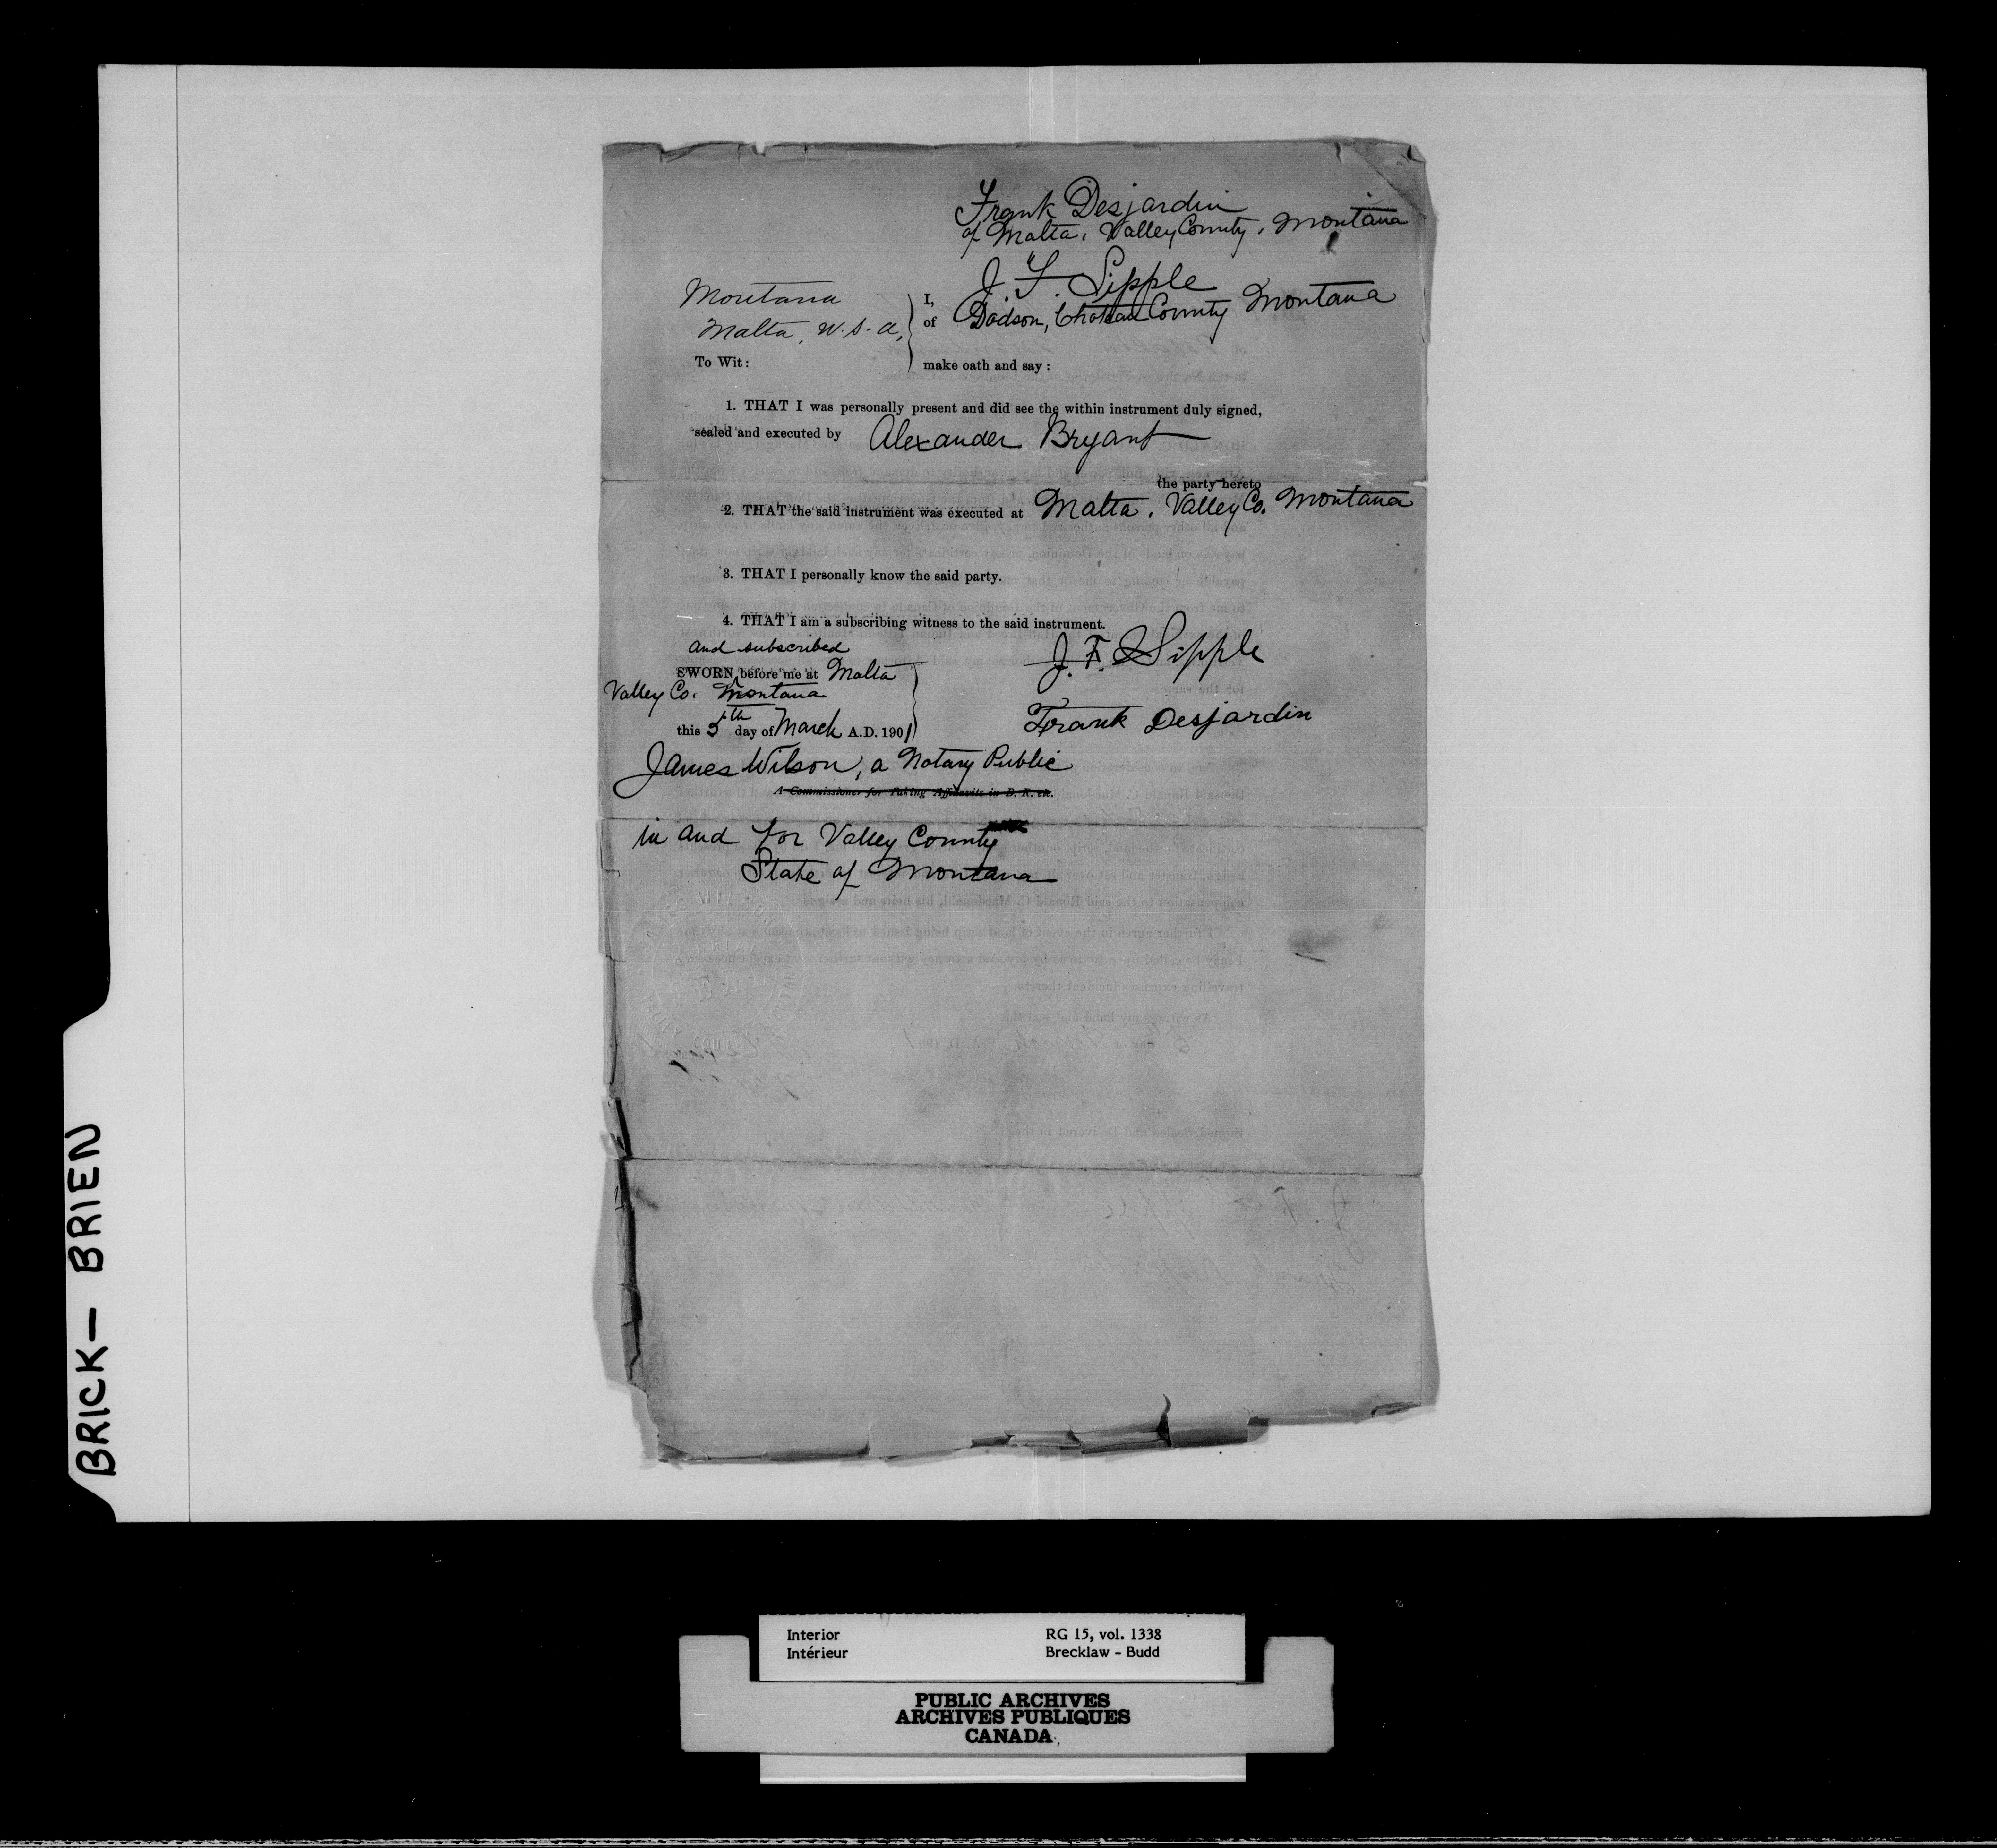 Frank Desjardin
of Malta, Valley County, Montana
J. F. Sipple
Montana
I,
of Dodson, Choteau County Montana
Malta, U.S.A,
To Wit:
make oath and say:
1. THAT I was personally present and did see the within instrument duly signed,
sealed and executed by Alexander Bryant
the party hereto
2. THAT the said instrument was executed at Malta, Valley Co. Montana
3. THAT I personally know the said party.
4. THAT I am a subscribing witness to the said instrument.
and subscribed
J. F. Sipple
SWORN before me at Malta
Valley Co. Montana
Frank Desjardin
this 5th day of March A.D. 1901
James Wilson, a Notary Public
A Commissioner for Taking Affidavits in B. R. etc.
in and for Valley County
State of Montana
SEAL
BRICK — BRIEN
Interior
RG 15, vol. 1338
Intérieur
Brecklaw - Budd
PUBLIC ARCHIVES
ARCHIVES PUBLIQUES
CANADA